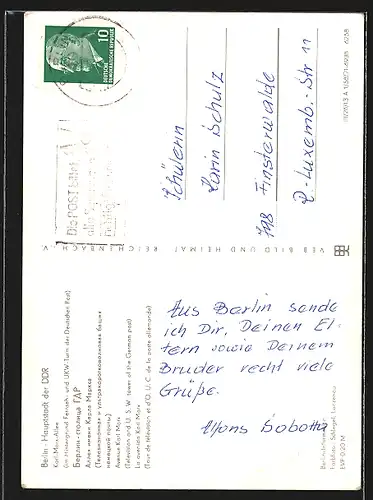 Berlin - Hauptstadt der DDR
Karl-Marx-Allee
(im Hintergrund Fernseh- und UKW-Turm der Deutschen Post)
Берлин-столица ГДР
Аллея имени Карла Маркса
(Телевизионная и ультракоротковолновая башня
немецкой почты)
Avenue Karl Marx
(Television and U. S. W. tower of the German post)
La avenida Karl Marx
(Tour de télévision et d'O. U. C. de la poste allemande)
Aus Berlin sende
ich Dir, Deinen El-
tern sowie Deinem
Bruder recht viele
Grüße.
Alfons Sobotta
EVP 0,20 M
VEB BILD UND HEIMAT REICHENBACH i. V.
10
DEUTSCHE
DEMOKRATISCHE REPUBLIK
Die POST bittet
Schülerin
Karin Schulz
798 Finsterwalde
R.-Luxemb.-Str 11